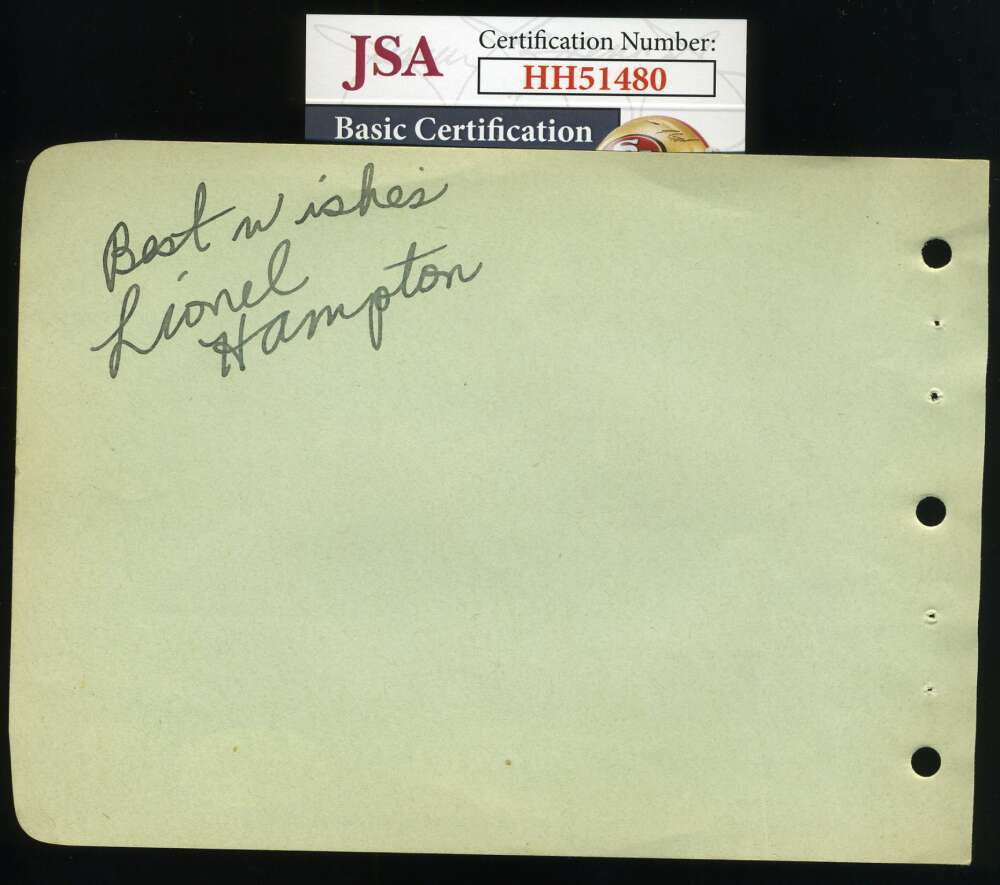 JSA
Certification Number:
HH51480
Basic Certification
Best wishes
Lionel
Hampton